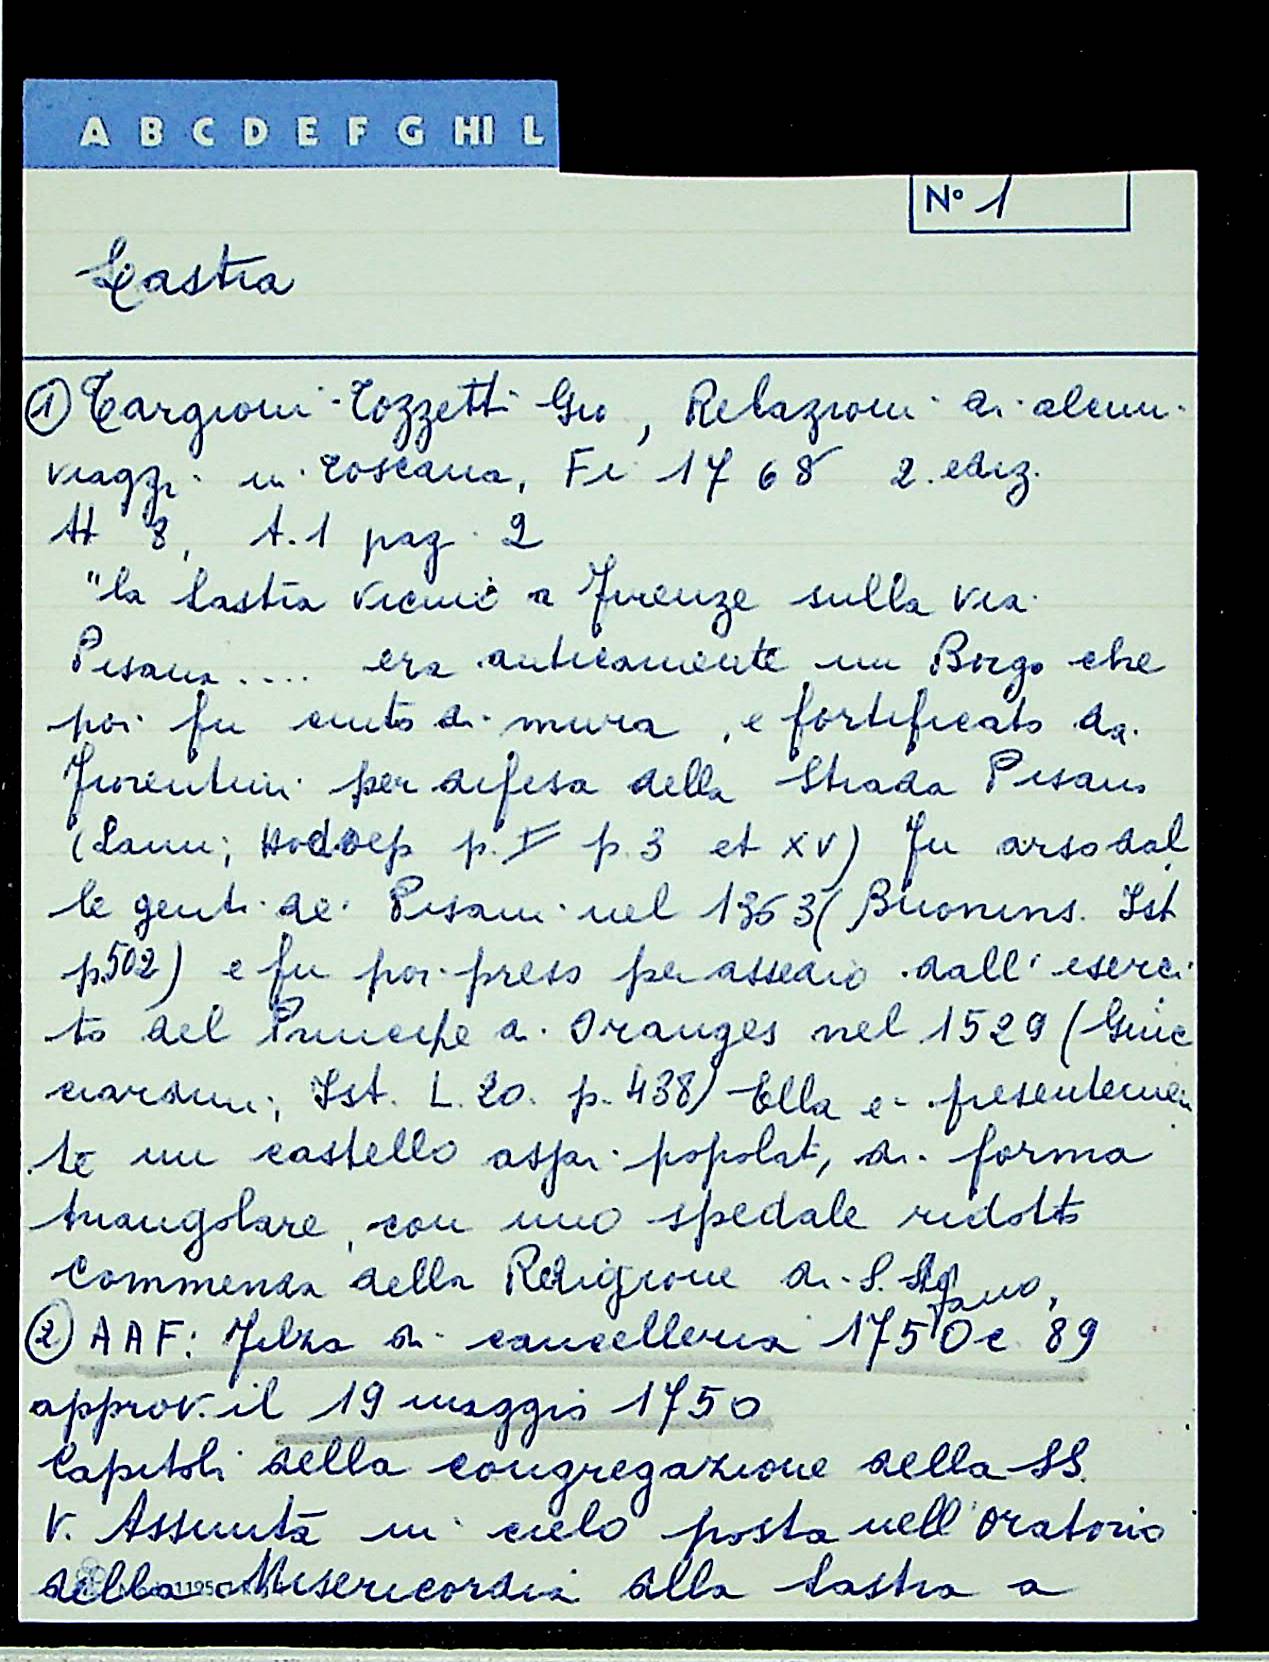 A B C D E F G HI L
N° 1
Lastra
① Targioni-Tozzetti Gio, Relazioni di alcuni
viaggi in Toscana, Fi 1768 2. ediz.
8, t. 1 pag. 2
"la Lastra vicino a Firenze sulla via
Pisana .... era anticamente un Borgo che
poi fu cinto di mura, e fortificato da
Fiorentini per difesa della Strada Pisana
(Lami; Hodoep p. V p. 3 et XV) Fu arso dal
le genti de Pisani nel 1363 (Buonins. Ist
p.502) e fu poi preso per assedio dall'eserci
to del Principe d. Oranges nel 1529 (Guic
ciardini; Ist. L. 20. p. 438) Ella e presentemen
te un castello assai popolat, di forma
triangolare, con uno spedale ridotto
Commenda della Religione di S. Stefano,
② AAF: Filza di cancelleria 1750 c 89
approv. il 19 maggio 1750
Capitoli della congregazione della SS.
V. Assunta in cielo posta nell'oratorio
della Misericordia alla Lastra a